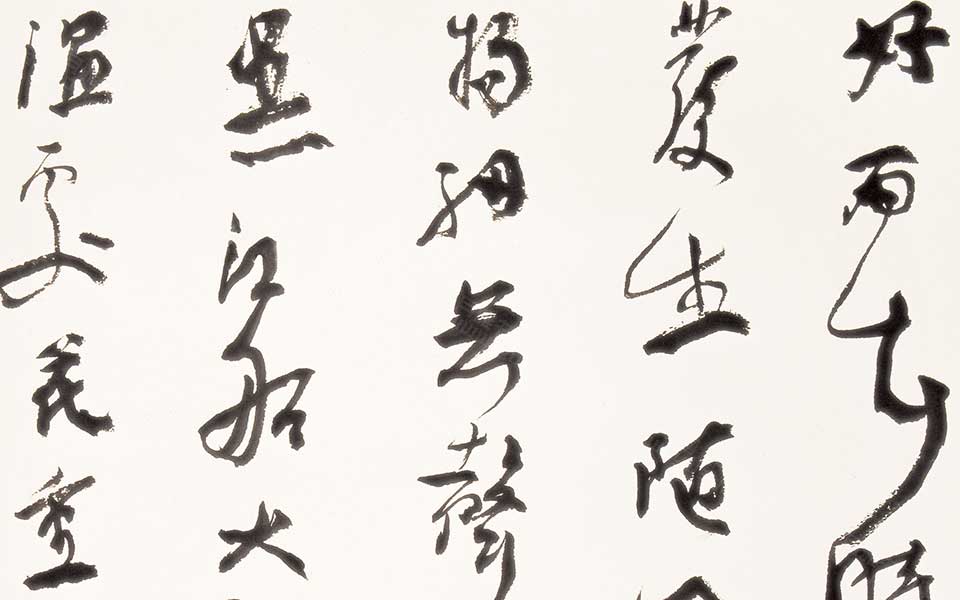 好雨知時
發生隨
物細無聲
黑江船火
濕處花重